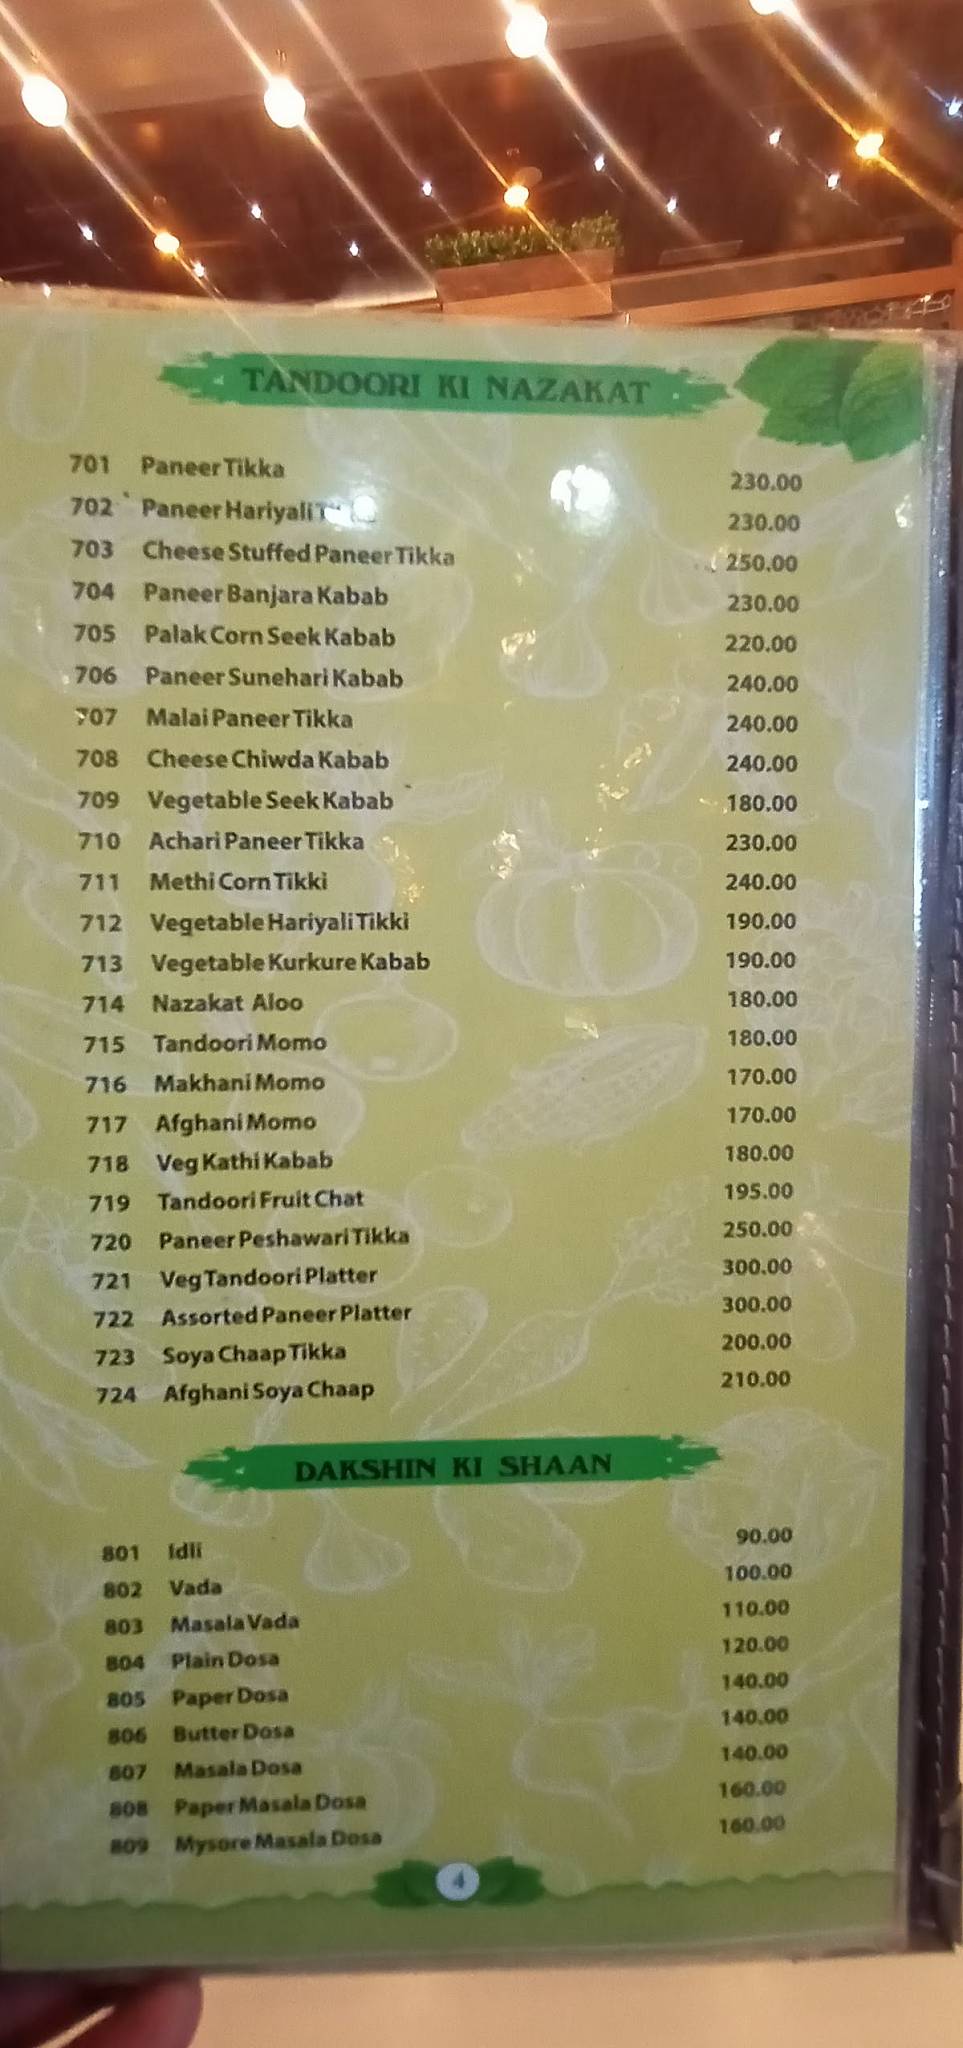 TANDOORI KI NAZAKAT
701 Paneer Tikka 230.00
702 Paneer Hariyali 230.00
703 Cheese Stuffed Paneer Tikka 250.00
704 Paneer Banjara Kabab 230.00
705 Palak Corn Seek Kabab 220.00
706 Paneer Sunehari Kabab 240.00
707 Malai Paneer Tikka 240.00
708 Cheese Chiwda Kabab 240.00
709 Vegetable Seek Kabab 180.00
710 Achari Paneer Tikka 230.00
711 Methi Corn Tikki 240.00
712 Vegetable Hariyali Tikki 190.00
713 Vegetable Kurkure Kabab 190.00
714 Nazakat Aloo 180.00
715 Tandoori Momo 180.00
716 Makhani Momo 170.00
717 Afghani Momo 170.00
718 Veg Kathi Kabab 180.00
719 Tandoori Fruit Chat 195.00
720 Paneer Peshawari Tikka 250.00
721 Veg Tandoori Platter 300.00
722 Assorted Paneer Platter 300.00
723 Soya Chaap Tikka 200.00
724 Afghani Soya Chaap 210.00
DAKSHIN KI SHAAN
801 Idli 90.00
802 Vada 100.00
803 Masala Vada 110.00
804 Plain Dosa 120.00
805 Paper Dosa 140.00
806 Butter Dosa 140.00
807 Masala Dosa 140.00
808 Paper Masala Dosa 160.00
809 Mysore Masala Dosa 160.00
4